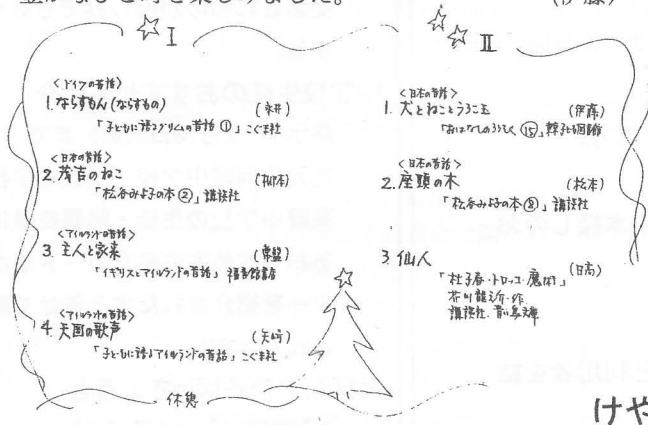 並がなひと時を楽しみました。
(伊藤)
I
<ドイツの昔話>
1. ならずもん(ならずもの) (永井)
「子どもに語るグリムの昔話①」こぐま社
<日本の昔話>
2. 茂吉のねこ (柳本)
「松谷みよ子の本②」講談社
<アイルランドの昔話>
3. 主人と家来 (常盤)
「イギリスとアイルランドの昔話」福音館書店
<アイルランドの昔話>
4. 天国の歌声 (矢崎)
「子どもに語るアイルランドの昔話」こぐま社
休憩
II
<日本の昔話>
1. 犬とねことうろこ玉 (伊藤)
「おはなしのろうそく⑮」東京子ども図書館
<日本の昔話>
2. 座頭の木 (松本)
「松谷みよ子の本⑧」講談社
3 仙人 (日高)
「杜子春・トロッコ・魔術」
芥川龍之介・作
講談社 青い鳥文庫
けや